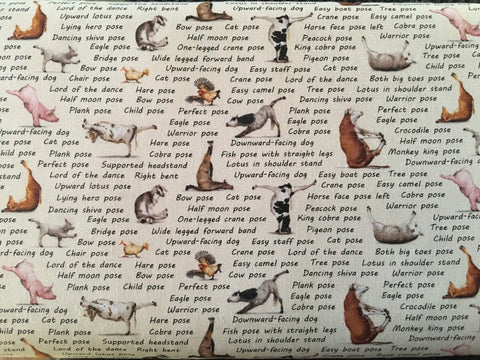 Lord of the dance Right bent Easy boat pose Tree pose
Upward lotus pose Crane pose Easy camel pose
Lying hero pose Bow pose Cat pose Horse face pose left Cobra pose
Dancing shiva pose Half moon pose Peacock pose Warrior pose
Eagle pose One-legged crane pose King cobra pose Upward-facing dog
Bridge pose Wide legged forward band Pigeon pose Tree pose
Upward-facing dog Bow pose Easy staff pose Cat pose Child pose
Chair pose Cat pose Crane pose Lord of the dance Both big toes pose
Lord of the dance Hare pose Easy camel pose Lotus in shoulder stand
Half moon pose Bow pose Cow pose Dancing shiva pose Warrior pose
Plank pose Child pose Perfect pose
Eagle pose
Upward-facing dog Perfect pose Warrior pose Crocodile pose
Tree pose Eagle pose Hare pose Plank pose Half moon pose
Child pose Plank pose Cobra pose Downward-facing dog Monkey king pose
Perfect pose Supported headstand Fish pose with straight legs Downward-facing dog
Lord of the dance Right bent Lotus in shoulder stand
Upward-facing dog Easy boat pose Tree pose
Upward lotus pose Crane pose Easy camel pose
Lying hero pose Bow pose Cat pose Horse face pose left Cobra pose
Dancing shiva pose Half moon pose Peacock pose Warrior pose
Eagle pose One-legged crane pose King cobra pose Upward-facing dog
Bridge pose Wide legged forward band Pigeon pose Tree pose
Upward-facing dog Bow pose Easy staff pose Cat pose Child pose
Chair pose Cat pose Crane pose Lord of the dance Both big toes pose
Lord of the dance Hare pose Easy camel pose Lotus in shoulder stand
Half moon pose Bow pose Cow pose Dancing shiva pose Warrior pose
Plank pose Child pose Perfect pose
Eagle pose
Upward-facing dog Perfect pose Warrior pose Crocodile pose
Tree pose Eagle pose Hare pose Plank pose Half moon pose
Child pose Plank pose Cobra pose Downward-facing dog Monkey king pose
Perfect pose Supported headstand Fish pose with straight legs Downward-facing dog
Lord of the dance Right bent Lotus in shoulder stand
Upward lotus pose Easy boat pose Tree pose